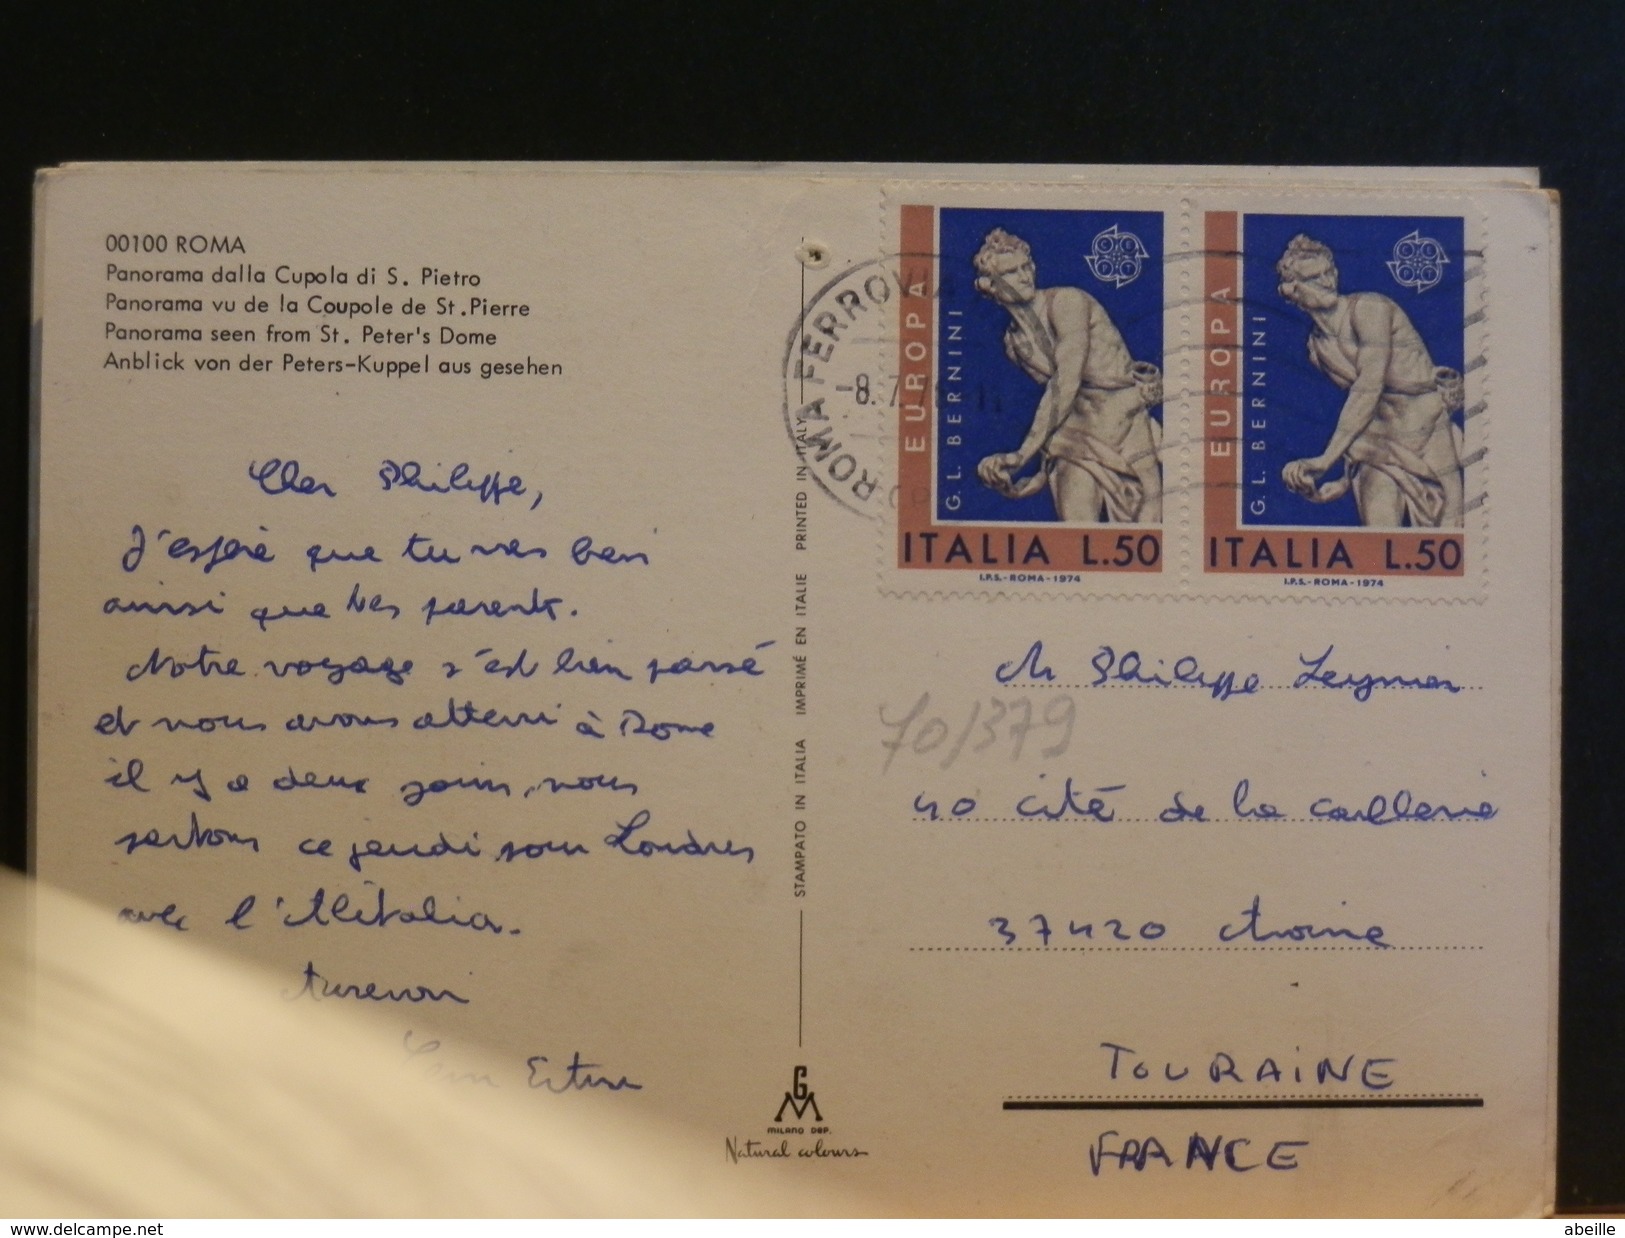 00100 ROMA
Panorama dalla Cupola di S. Pietro
Panorama vu de la Coupole de St.Pierre
Panorama seen from St. Peter's Dome
Anblick von der Peters-Kuppel aus gesehen
Cher Philippe,
J'espère que tu vas bien
ainsi que tes parents.
Notre voyage s'est bien passé
et nous avons atterri à Rome
il y a deux jours, nous
partons ce jeudi pour Londres
avec l'Alitalia.
STAMPATO IN ITALIA IMPRIMÉ EN ITALIE PRINTED IN ITALY
GM
MILANO DEP.
Natural colours
ROMA FERROVIA
-8.7.7
EUROPA
G. L. BERNINI
CEPT
ITALIA L.50
I.P.S.-ROMA-1974
EUROPA
G. L. BERNINI
CEPT
ITALIA L.50
I.P.S.-ROMA-1974
70/379
M Philippe
40 cité de la
37420
TOURAINE
FRANCE
www.delcampe.net
abeille